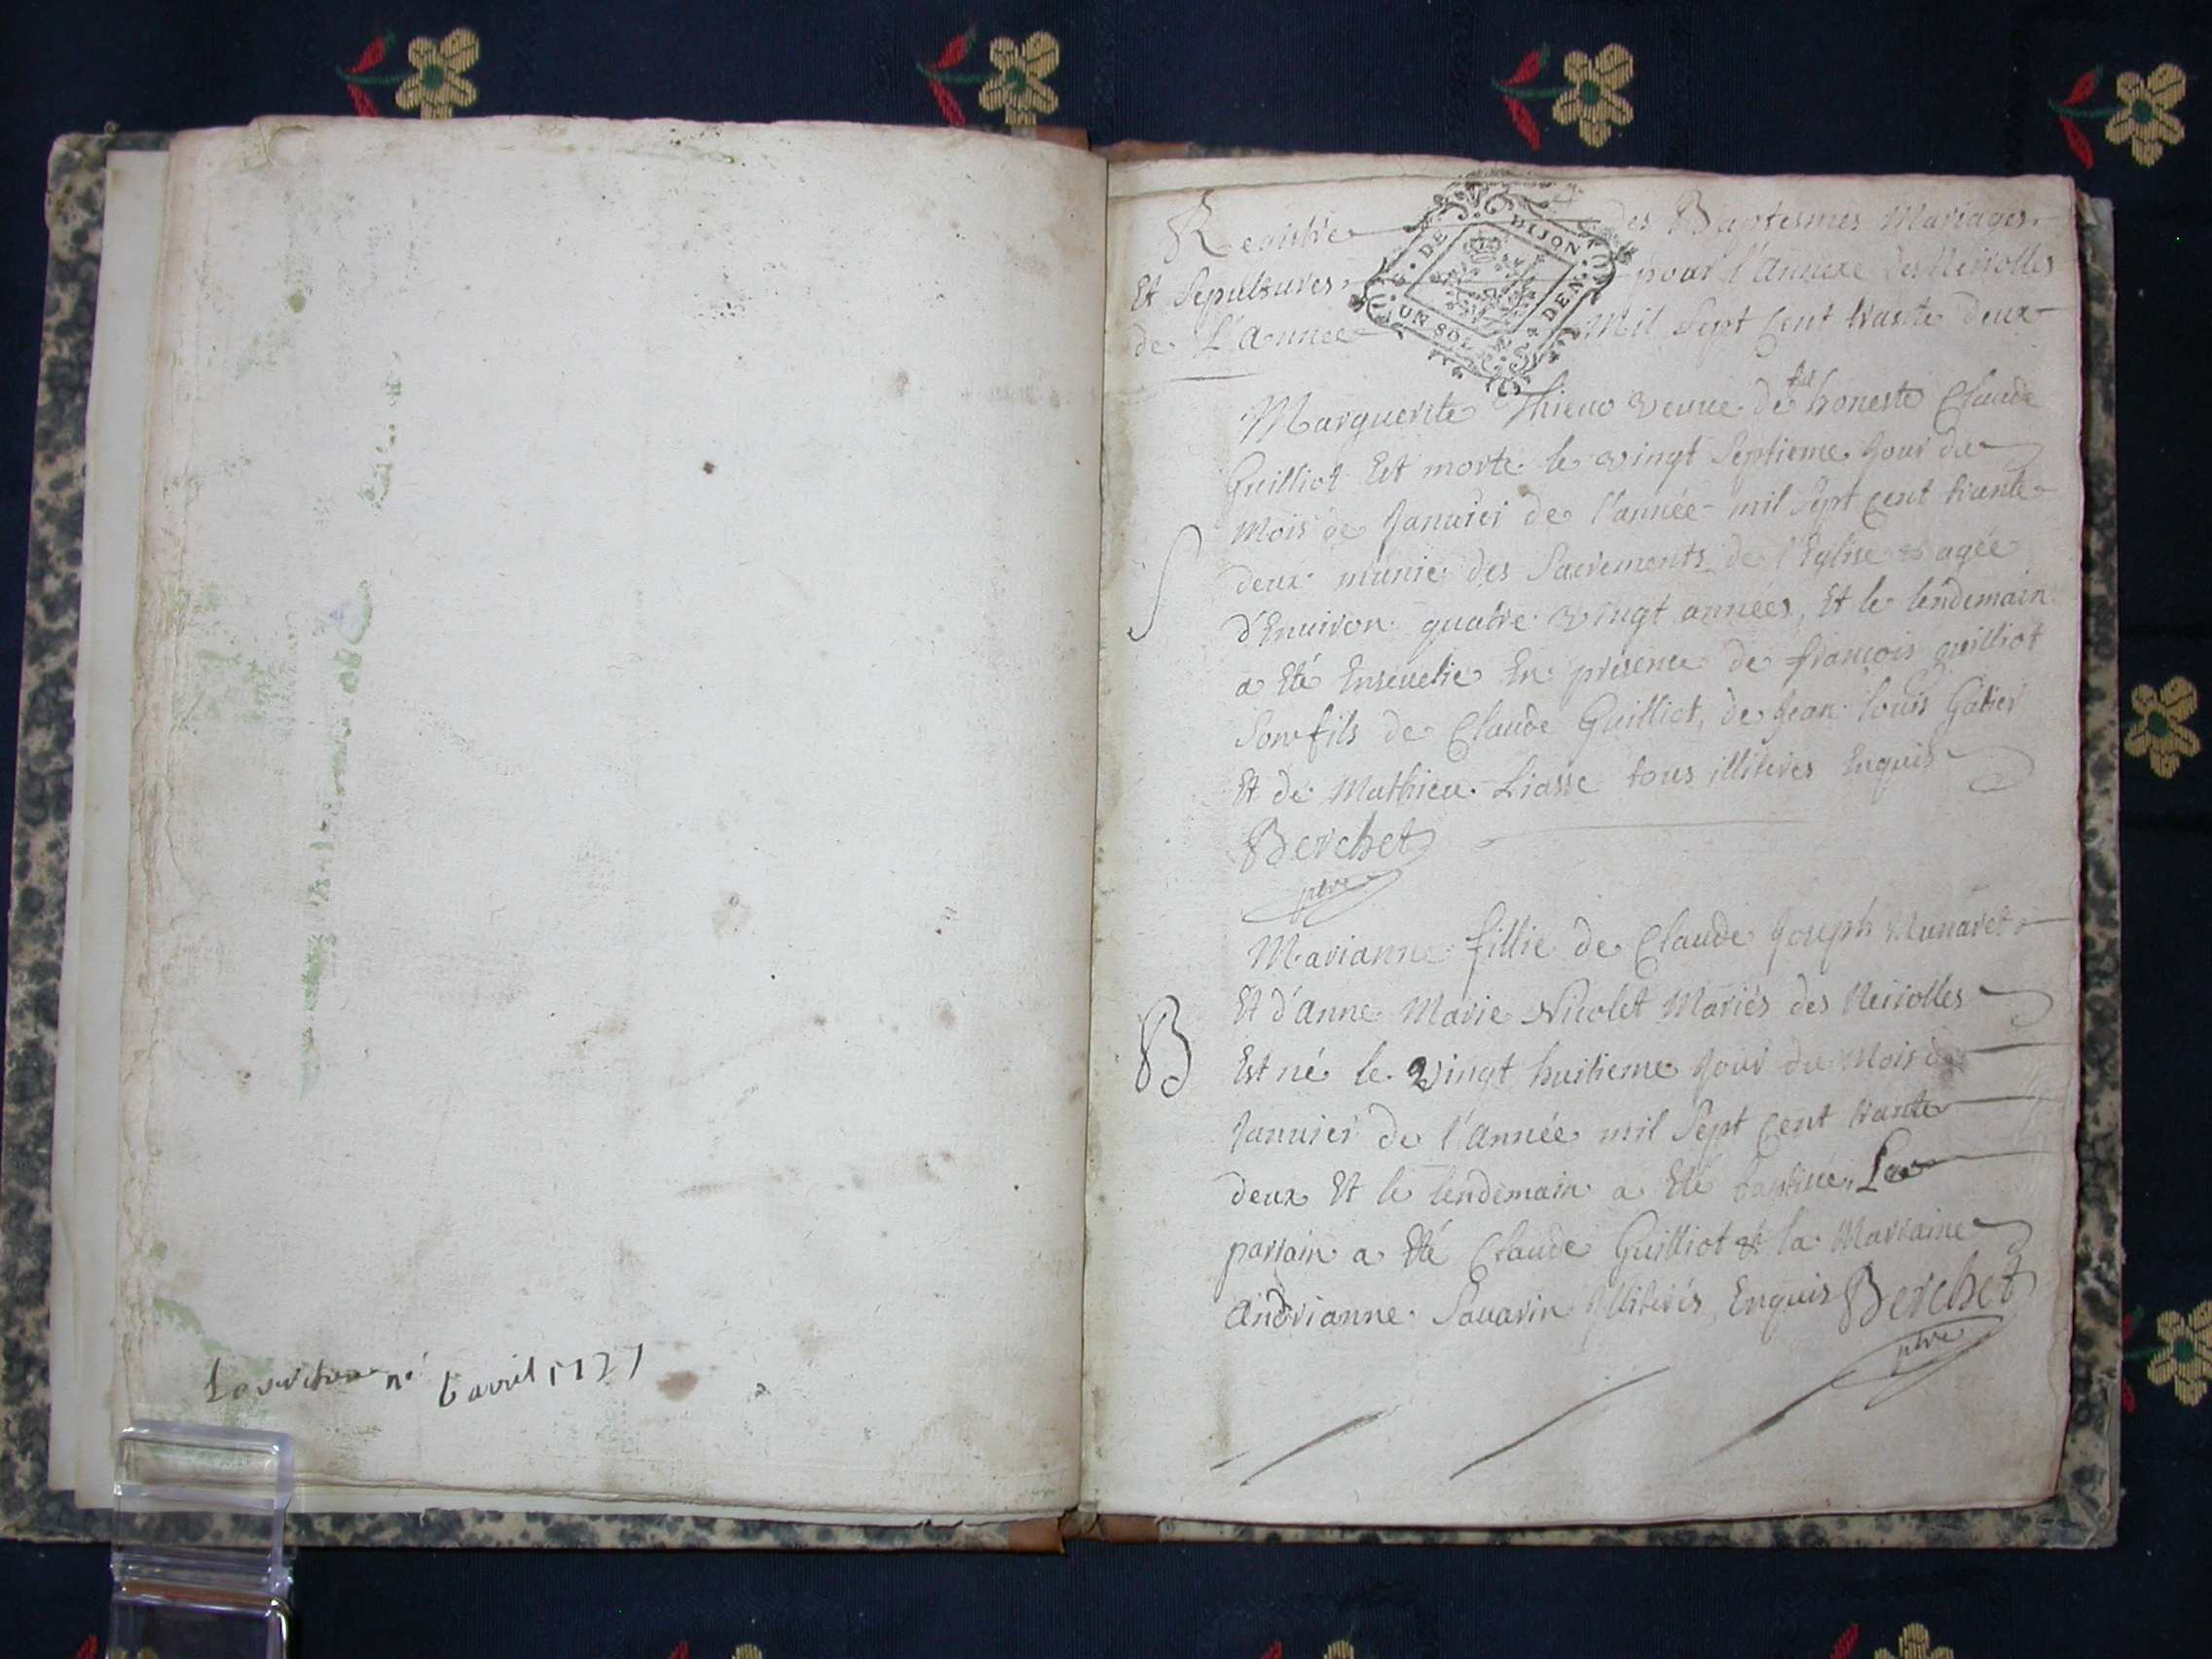 né 6 avril 1727
Registre des Baptesmes Mariages
Et Sepultures pour l'Annexe des Neirolles
de L'Année Mil Sept Cent trante deux
G. DE DIJON
UN SOL 4 DEN.
Marguerite Thieno veuue de fut honeste Claude
Guilliot Est morte le vingt Septieme Jour du
Mois de Januier de l'année mil Sept Cent trante
deux munie des Sacrements de l'Eglise & agée
S
d'Enuiron quatre vingt années, Et le lendemain
a Eté Enseuelie En presence de françois guilliot
Son fils de Claude Guilliot, de Jean Louis Gatier
Et de Mathieu Liasse tous illiterés Enquis
Berchet
ptre
Marianne fillie de Claude Joseph Munaret
Et d'Anne Marie Nicolet Mariés des Neirolles
B
Est né le vingt huitieme Jour du Mois de
Januier de l'Année mil Sept Cent trante
deux Et le lendemain a Eté baptisée, Le
parrain a Eté Claude Guilliot & la Marraine
Andrianne Sauarin Illiterés Enquis Berchet
ptre